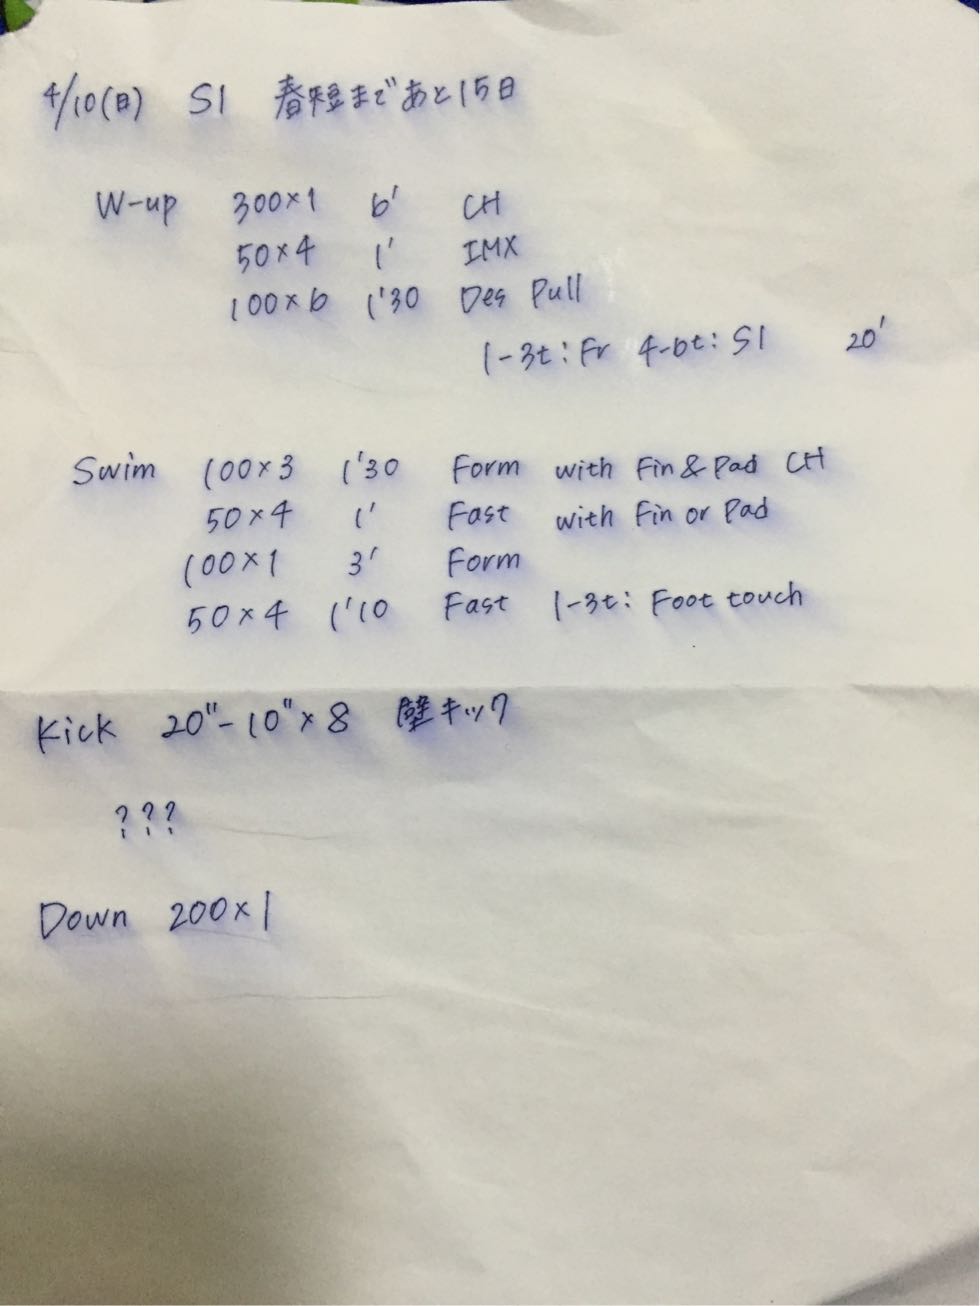 4/10(日) S1 春短まであと15日
W-up 300×1 6' CH
50×4 1' IMX
100×6 1'30 Des Pull
1-3t:Fr 4-6t:S1 20'
Swim 100×3 1'30 Form with Fin & Pad CH
50×4 1' Fast with Fin or Pad
100×1 3' Form
50×4 1'10 Fast 1-3t: Foot touch
Kick 20"-10"×8 壁キック
???
Down 200×1